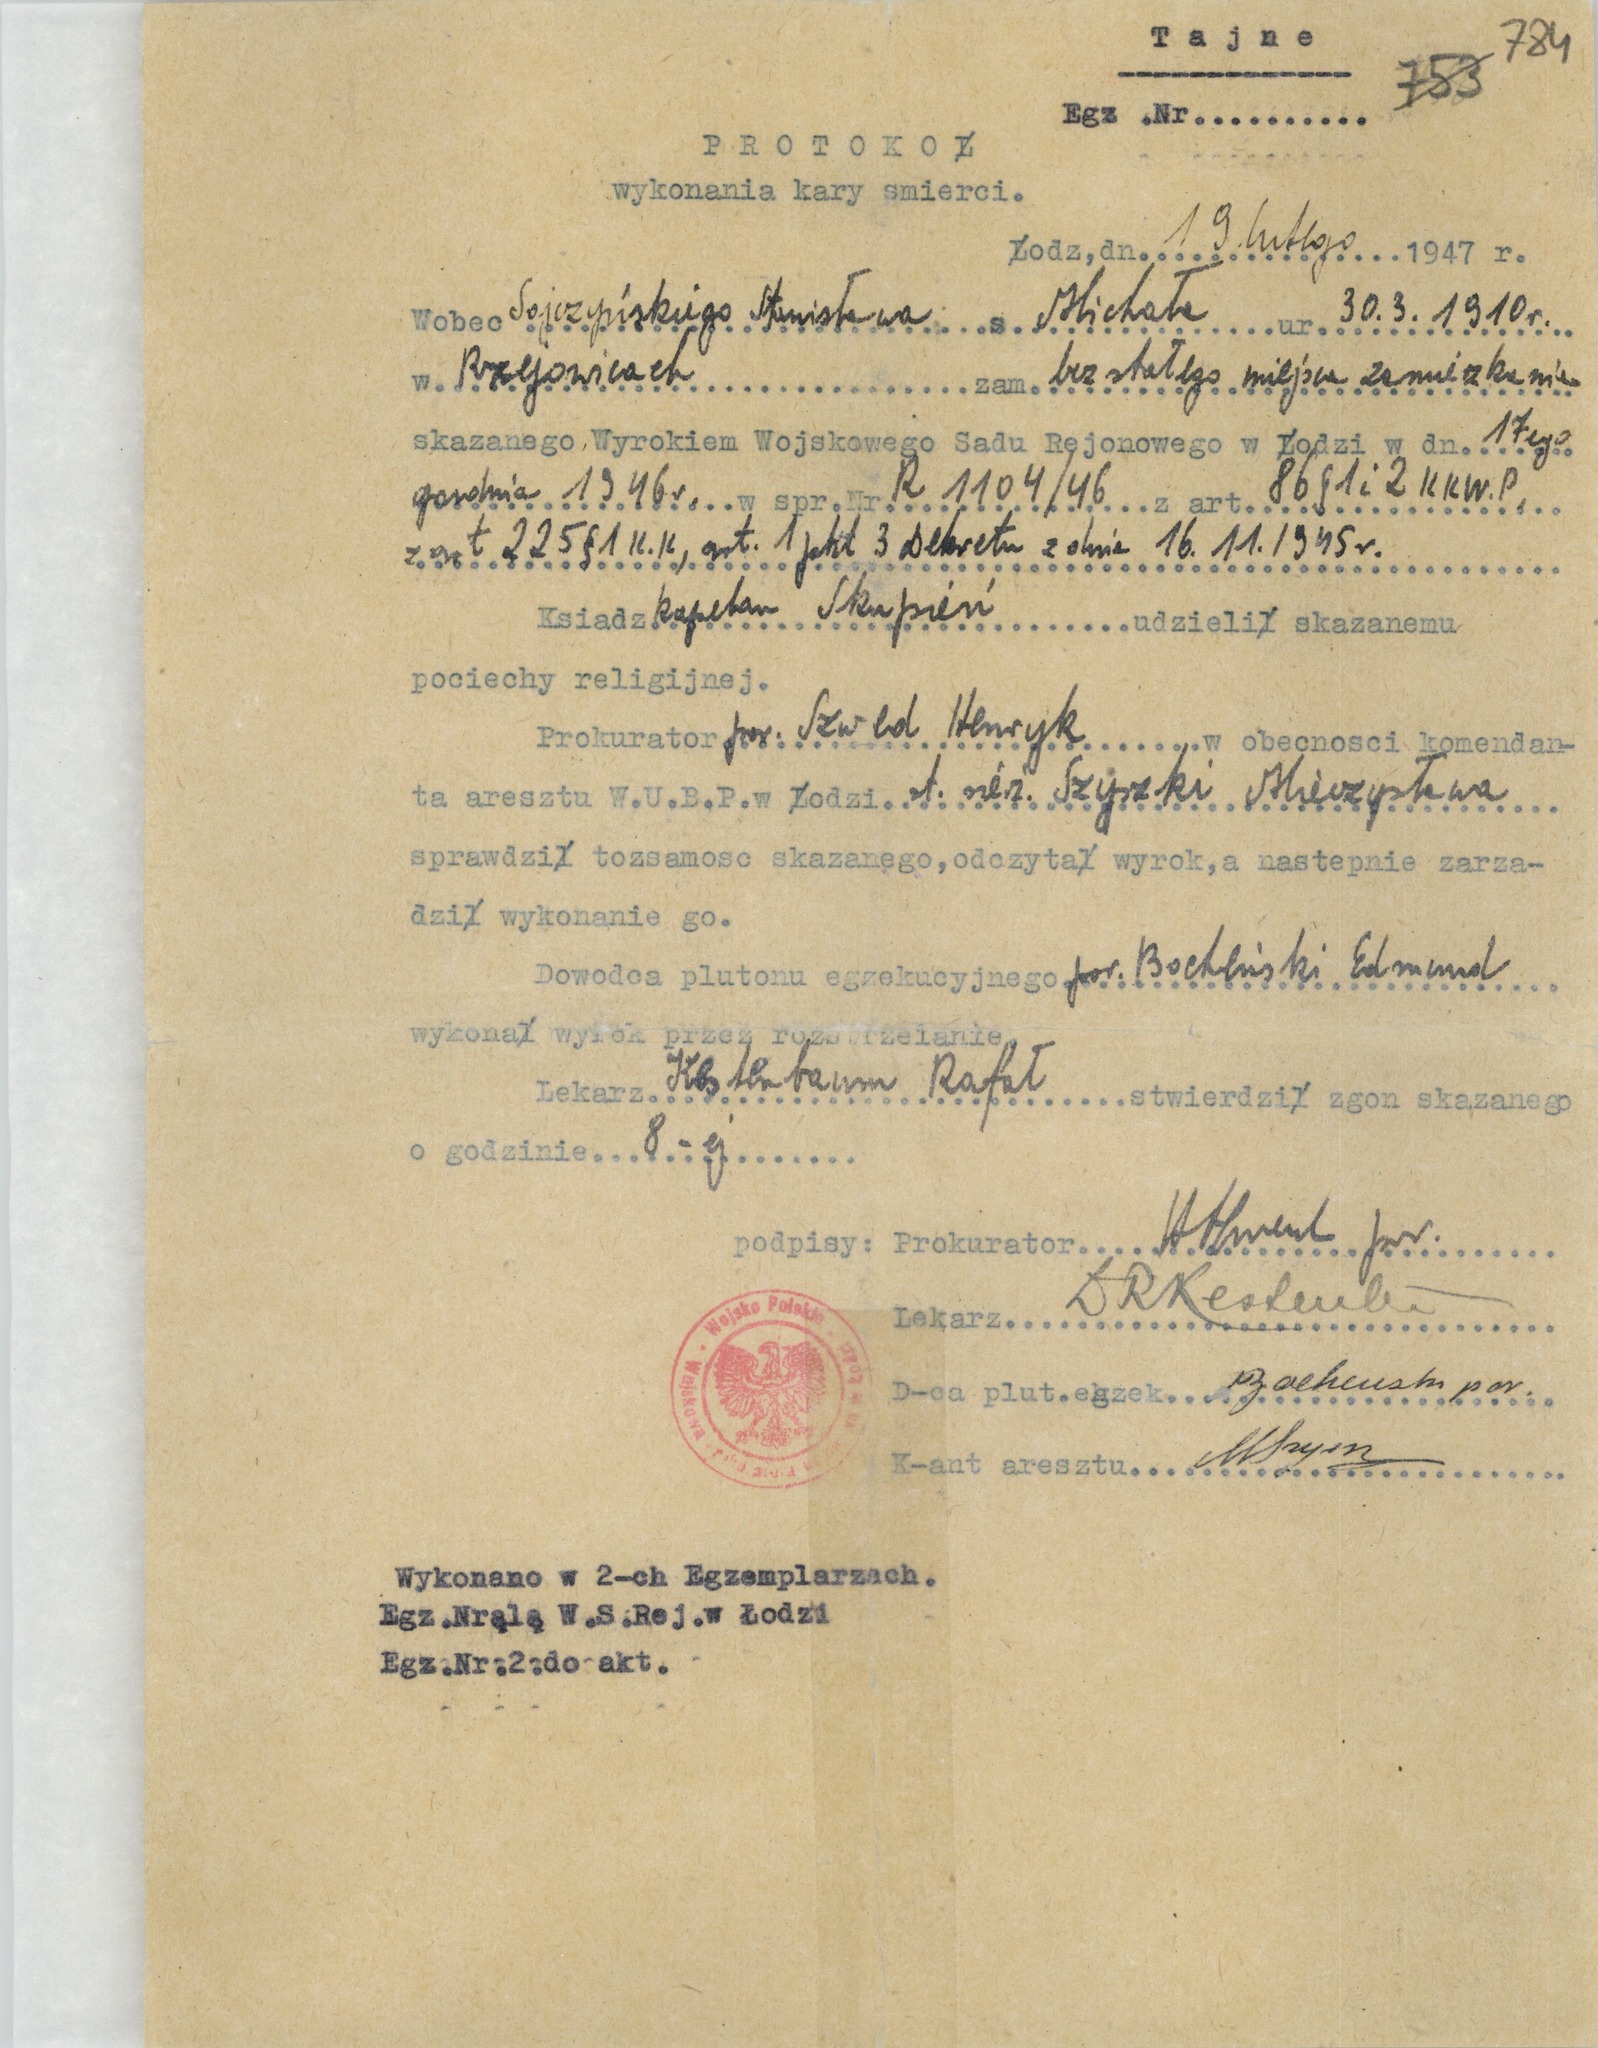 Tajne
784
753
Egz .Nr...........
PROTOKOŁ
wykonania kary smierci.
Łodz,dn. 19. lutego 1947 r.
Wobec Sojczyńskiego Stanisława s. Michała ur. 30.3. 1910r.
w. Rzejowicach zam. bez stałego miejsca zamieszkania
skazanego Wyrokiem Wojskowego Sadu Rejonowego w Łodzi w dn. 17ego
grudnia 1946r. w spr.Nr R 1104/46 z art. 86§1 i 2 KKW.P.
z art 225§1 K.K, art. 1 pkt 3 Dekretu z dnia 16. 11. 1945r.
Ksiadz kapelan Skupień udzielił skazanemu
pociechy religijnej.
Prokurator por. Szwed Henryk w obecnosci komendan-
ta aresztu W.U.B.P.w Łodzi st. sierż. Szyszki Mieczysława
sprawdził tozsamosc skazanego,odczytał wyrok,a nastepnie zarza-
dził wykonanie go.
Dowodca plutonu egzekucyjnego por. Bocheński Edmund
wykonał wyrok przez rozstrzelanie.
Lekarz Kestenbaum Rafał stwierdził zgon skazanego
o godzinie 8-ej
podpisy: Prokurator por.
Lekarz DR Kestenba
D-ca plut.egzek. Bochenski por.
K-ant aresztu
Wojsko Polskie
Wykonano w 2-ch Egzemplarzach.
Egz.Nrąlą W.S.Rej.w Łodzi
Egz.Nr.2.do akt.